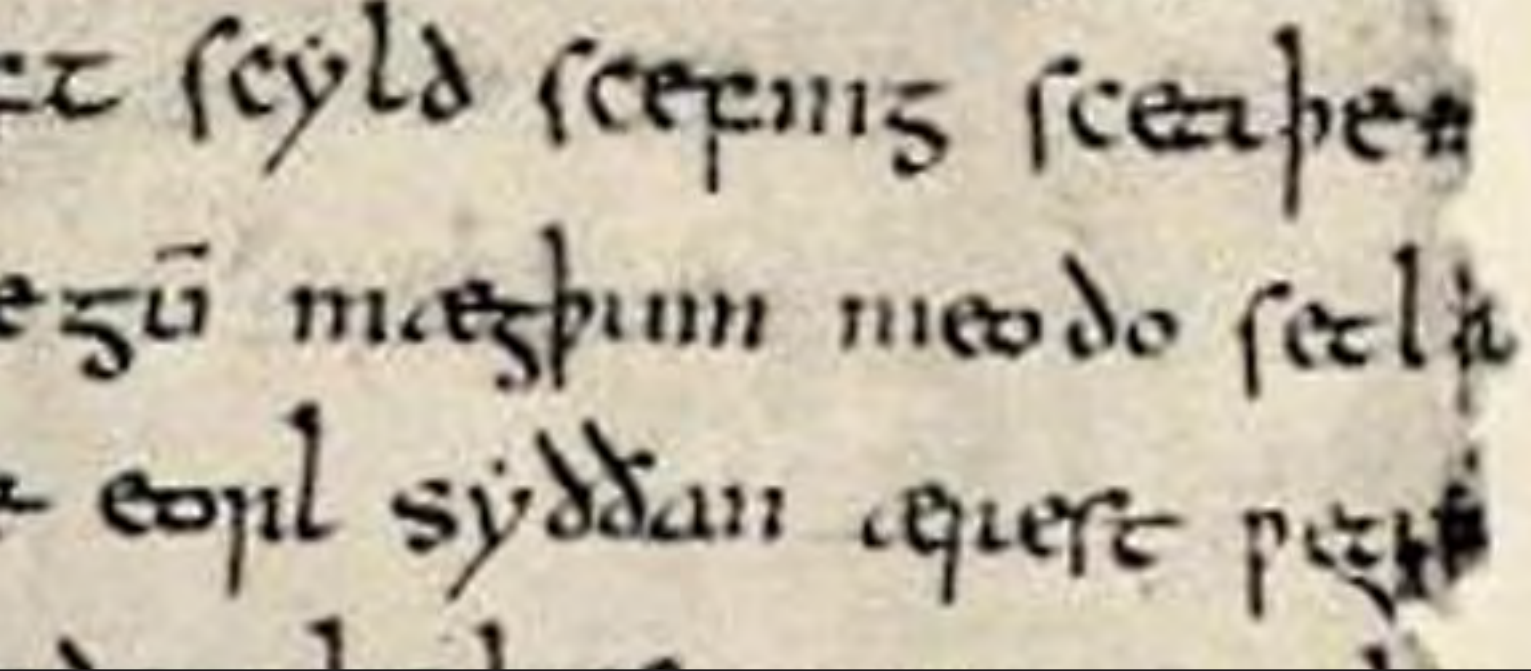 ft scyld scefing sceaþen
egū mægþum meodo setla
eorl syððan ærest ƿear